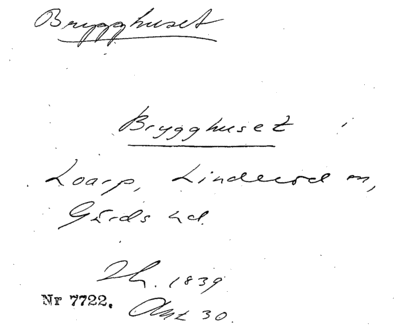 Brygghuset
Brygghuset i
Loarp, Linderöd sn,
Gärds hd.
Th. 1839
Nr 7722. Ant 30.